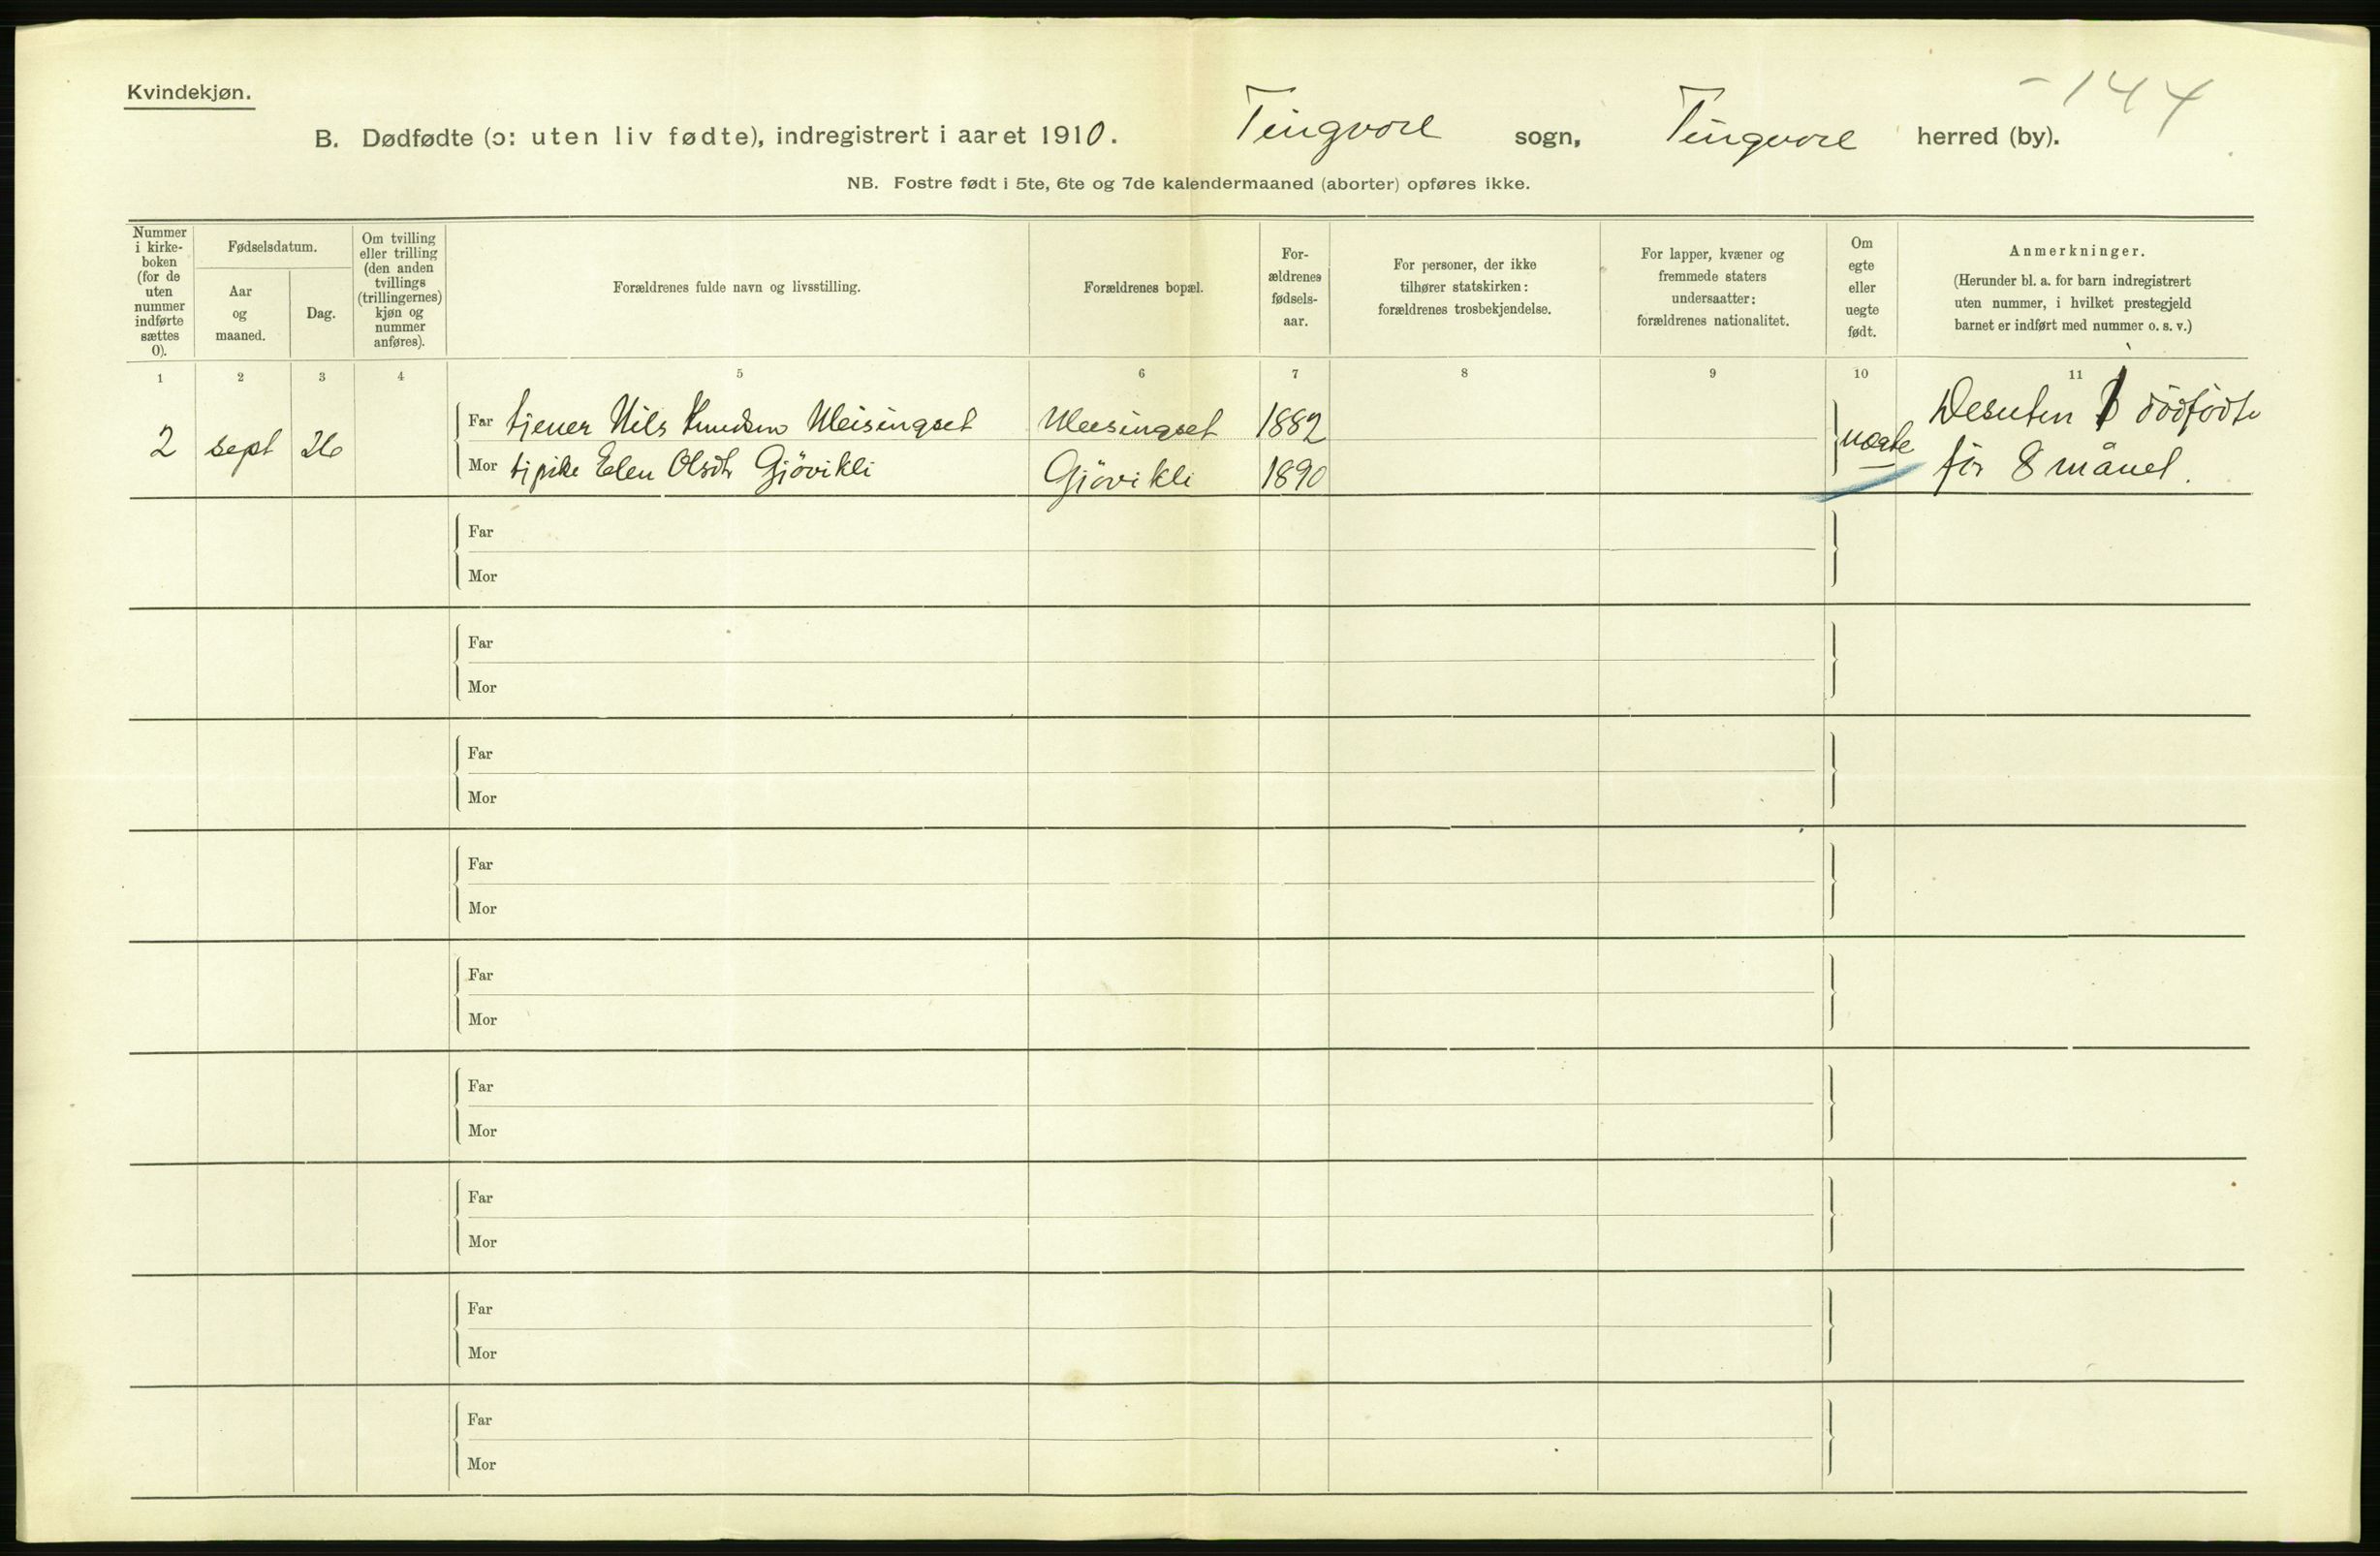 Kvindekjøn.
-144
B. Dødfødte (ɔ: uten liv fødte), indregistrert i aaret 1910. Tingvoll sogn, Tingvoll herred (by).
NB. Fostre født i 5te, 6te og 7de kalendermaaned (aborter) opføres ikke.
Nummer i kirke-boken (for de uten nummer indførte sættes 0).
Fødselsdatum.
Aar og maaned.
Dag.
Om tvilling eller trilling (den anden tvillings (trillingernes) kjøn og nummer anføres).
Forældrenes fulde navn og livsstilling.
Forældrenes bopæl.
For-ældrenes fødsels-aar.
For personer, der ikke tilhører statskirken: forældrenes trosbekjendelse.
For lapper, kvæner og fremmede staters undersaatter: forældrenes nationalitet.
Om egte eller uegte født.
Anmerkninger.
(Herunder bl. a. for barn indregistrert uten nummer, i hvilket prestegjeld barnet er indført med nummer o. s. v.)
1 2 3 4 5 6 7 8 9 10 11
2 sept 26
Far tjener Nils Knudsen Meisingset Meisingset 1882
Mor tj pike Elen Olsdtr Gjövikli Gjövikli 1890
uegte
Desuten 1 dödfödte
för 8 måned.
Far
Mor
Far
Mor
Far
Mor
Far
Mor
Far
Mor
Far
Mor
Far
Mor
Far
Mor
Far
Mor